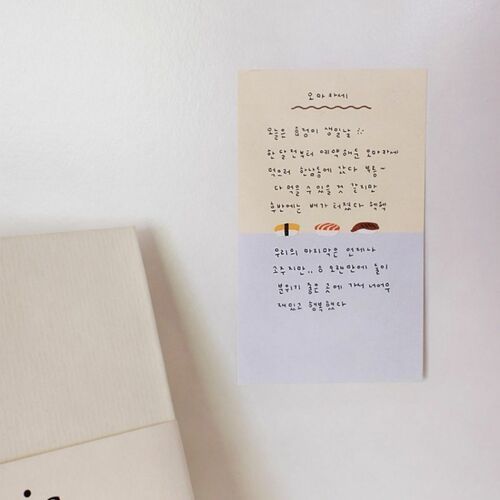 오마카세
오늘은 홈정이 생일날
한달전부터 예약해둔 오마카세
먹으러 한남동에 갔다 부릉~
다 먹을 수 있을 것 같지만
후반에는 배가 터졌다 헥헥
우리의 마지막은 언제나
소주지만,, ㅎ 오랜만에 둘이
분위기 좋은 곳에 가서 너어무
재밌고 행복했다